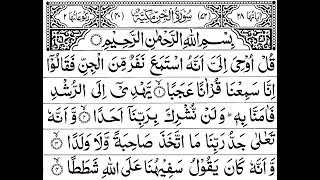 اٰیَاتُهَا ٢٨ (٧٢) سُوْرَةُ الْجِنِّ مَكِّيَّةٌ (٤٠) رُكُوْعَاتُهَا ٢
بِسْمِ اللهِ الرَّحْمٰنِ الرَّحِيْمِ
قُلْ اُوْحِيَ اِلَيَّ اَنَّهُ اسْتَمَعَ نَفَرٌ مِّنَ الْجِنِّ فَقَالُوْٓا
اِنَّا سَمِعْنَا قُرْاٰنًا عَجَبًا ١ يَّهْدِيْٓ اِلَى الرُّشْدِ
فَاٰمَنَّا بِهٖ ؕ وَلَنْ نُّشْرِكَ بِرَبِّنَآ اَحَدًا ٢ وَّاَنَّهٗ
تَعٰلٰى جَدُّ رَبِّنَا مَا اتَّخَذَ صَاحِبَةً وَّلَا وَلَدًا ٣
وَّاَنَّهٗ كَانَ يَقُوْلُ سَفِيْهُنَا عَلَى اللهِ شَطَطًا ٤